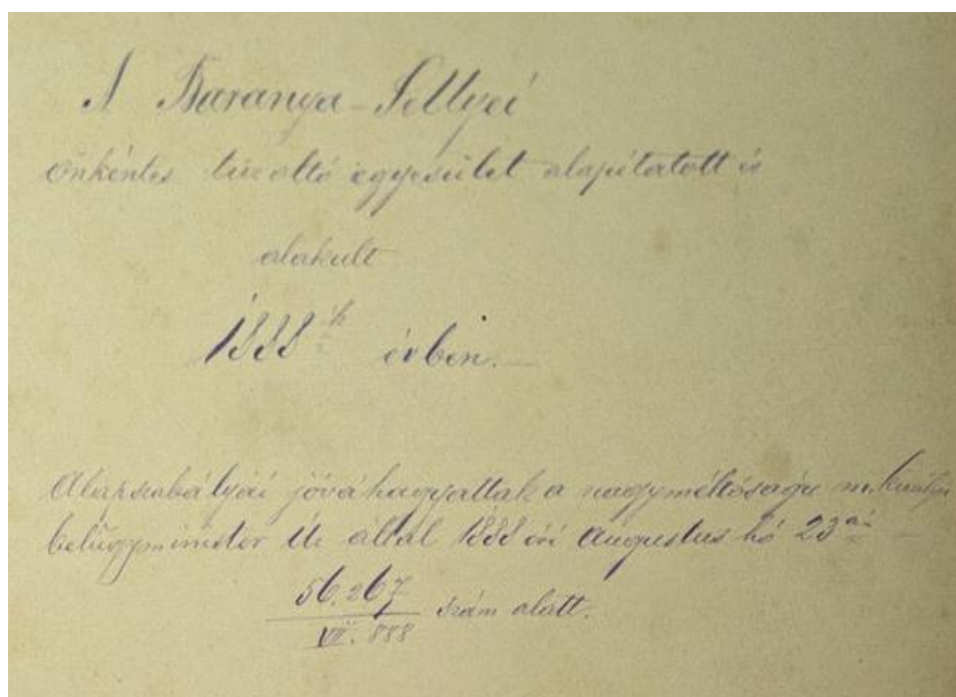 A Baranya-Sellyei
önkéntes tűzoltó egyesület alapítatott és
alakult
1888 ik évben.—
Alapszabályai jóváhagyattak a nagyméltóságu m. királyi
belügyminister Úr által 1888 évi Augustus hó 23 ai —
56.267
VII. 888 szám alatt.